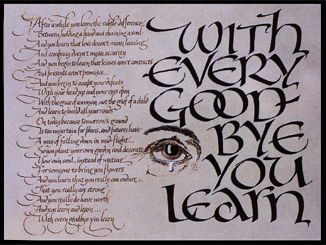 After a while you learn the subtle difference
Between holding a hand and chaining a soul
And you learn that love doesn't mean leaning
And company doesn't mean security
And you begin to learn that kisses aren't contracts
And presents aren't promises...
And you begin to accept your defeats
With your head up and your eyes open
With the grace of a woman, not the grief of a child
And learn to build all your roads
On today because tomorrow's ground
Is too uncertain for plans, and futures have
A way of falling down in mid-flight...
So you plant your own garden and decorate
Your own soul, instead of waiting
For someone to bring you flowers
And you learn that you really can endure...
That you really are strong
And you really do have worth
And you learn and learn.....
With every goodbye you learn
WITH
EVERY
GOOD
BYE
YOU
LEARN